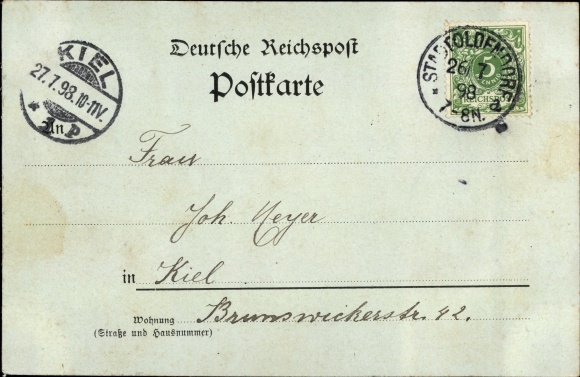 Deutsche Reichspost
Postkarte
KIEL
27.7.98.10-11V.
* An p
* STADTOLDENDORF *
26 7
98
7-8N.
REICHSPOST
Frau
Joh. Meyer
in Kiel
Wohnung Brunswickerstr. 42.
(Straße und Hausnummer)